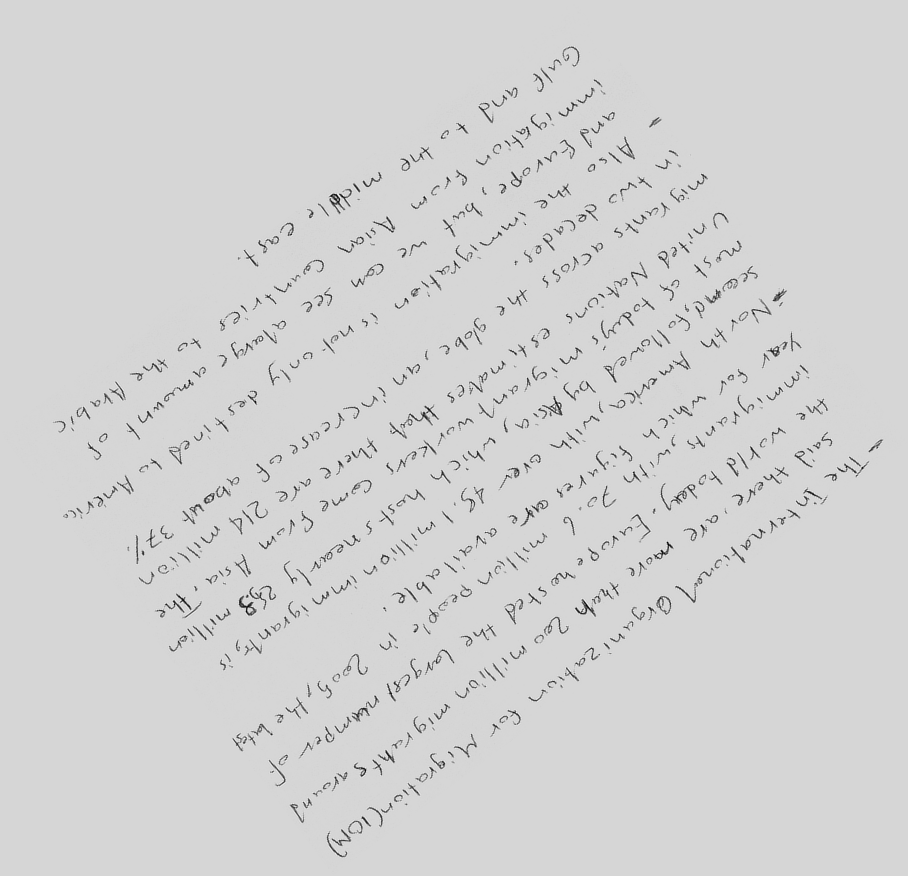 - The International Organization for Migration (IOM)
said there, are more than 200 million migrants around
the world today. Europe hosted the largest numper of
immigrants, with 70.6 million people in 2005, the latest
year for which figures are available.
- North America, with over 45.1 million immigrants, is
second, followed by Asia, which hosts nearly 25.3 million
most of today's migrant workers come from Asia. The
United Nations estimates that there are 214 million
migrants across the globe, an increase of about 37%
in two decades.
- Also the immigration is not only destined to America
and Europe, but we can see a large amount of
immigration from Asian countries to the Arabic
Gulf and to the middle east.